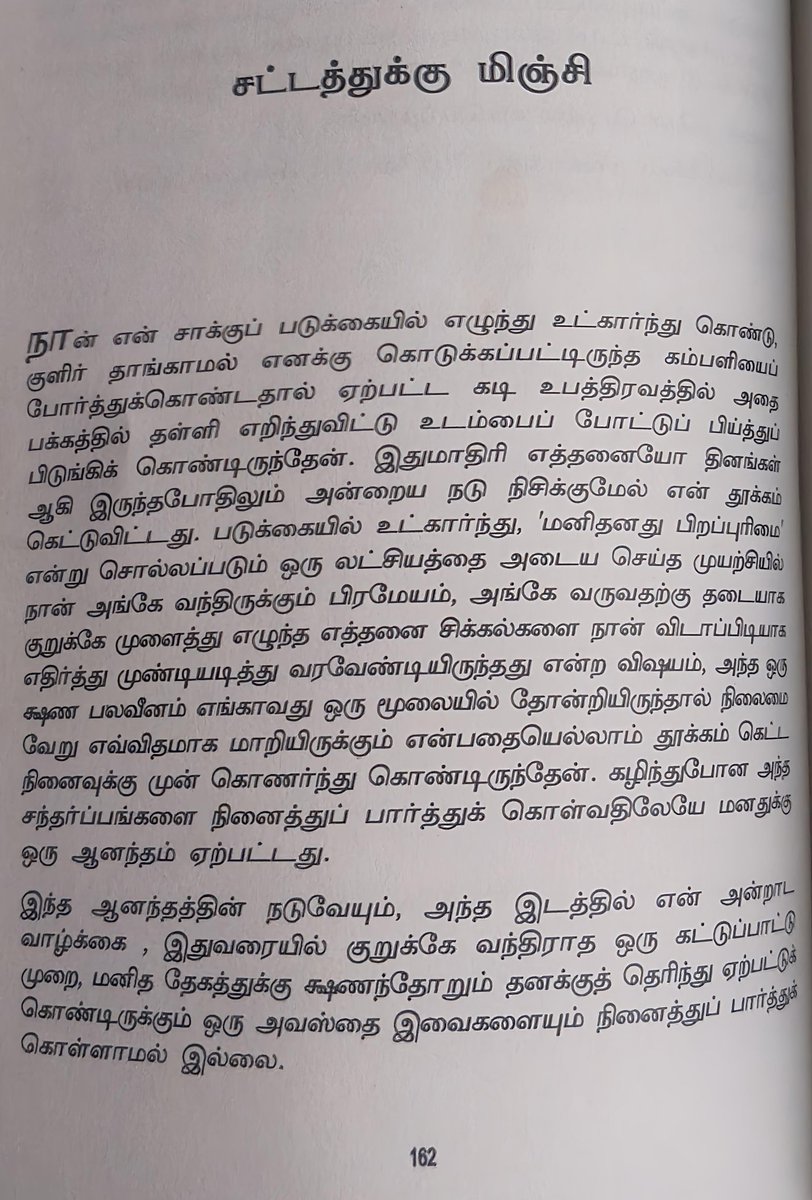 சட்டத்துக்கு மிஞ்சி
நான் என் சாக்குப் படுக்கையில் எழுந்து உட்கார்ந்து கொண்டு,
குளிர் தாங்காமல் எனக்கு கொடுக்கப்பட்டிருந்த கம்பளியைப்
போர்த்துக்கொண்டதால் ஏற்பட்ட கடி உபத்திரவத்தில் அதை
பக்கத்தில் தள்ளி எறிந்துவிட்டு உடம்பைப் போட்டுப் பிய்த்துப்
பிடுங்கிக் கொண்டிருந்தேன். இதுமாதிரி எத்தனையோ தினங்கள்
ஆகி இருந்தபோதிலும் அன்றைய நடு நிசிக்குமேல் என் தூக்கம்
கெட்டுவிட்டது. படுக்கையில் உட்கார்ந்து, 'மனிதனது பிறப்புரிமை'
என்று சொல்லப்படும் ஒரு லட்சியத்தை அடைய செய்த முயற்சியில்
நான் அங்கே வந்திருக்கும் பிரமேயம், அங்கே வருவதற்கு தடையாக
குறுக்கே முளைத்து எழுந்த எத்தனை சிக்கல்களை நான் விடாப்பிடியாக
எதிர்த்து முண்டியடித்து வரவேண்டியிருந்தது என்ற விஷயம், அந்த ஒரு
க்ஷண பலவீனம் எங்காவது ஒரு மூலையில் தோன்றியிருந்தால் நிலைமை
வேறு எவ்விதமாக மாறியிருக்கும் என்பதையெல்லாம் தூக்கம் கெட்ட
நினைவுக்கு முன் கொணர்ந்து கொண்டிருந்தேன். கழிந்துபோன அந்த
சந்தர்ப்பங்களை நினைத்துப் பார்த்துக் கொள்வதிலேயே மனதுக்கு
ஒரு ஆனந்தம் ஏற்பட்டது.
இந்த ஆனந்தத்தின் நடுவேயும், அந்த இடத்தில் என் அன்றாட
வாழ்க்கை , இதுவரையில் குறுக்கே வந்திராத ஒரு கட்டுப்பாட்டு
முறை, மனித தேகத்துக்கு க்ஷணந்தோறும் தனக்குத் தெரிந்து ஏற்பட்டுக்
கொண்டிருக்கும் ஒரு அவஸ்தை இவைகளையும் நினைத்துப் பார்த்துக்
கொள்ளாமல் இல்லை.
162